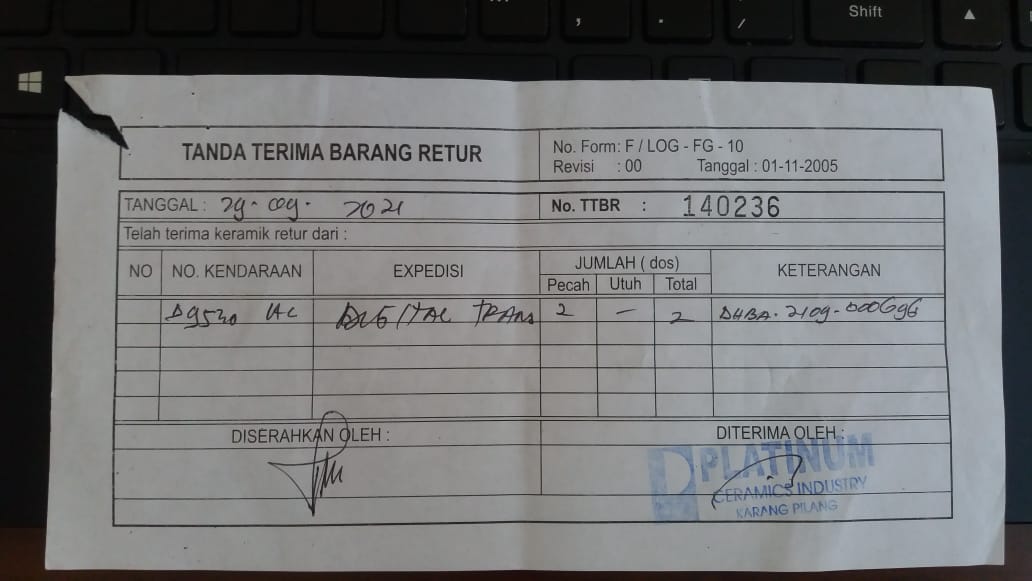 Shift
TANDA TERIMA BARANG RETUR
No. Form: F / LOG - FG - 10
Revisi : 00 Tanggal : 01-11-2005
TANGGAL : 29. 09. 2021
No. TTBR : 140236
Telah terima keramik retur dari :
NO NO. KENDARAAN EXPEDISI JUMLAH ( dos) KETERANGAN
Pecah Utuh Total
DIGITAL TRANS 2 – 2 DHBA. 2109. 000696
DISERAHKAN OLEH :
DITERIMA OLEH :
PLATINUM
CERAMICS INDUSTRY
KARANG PILANG